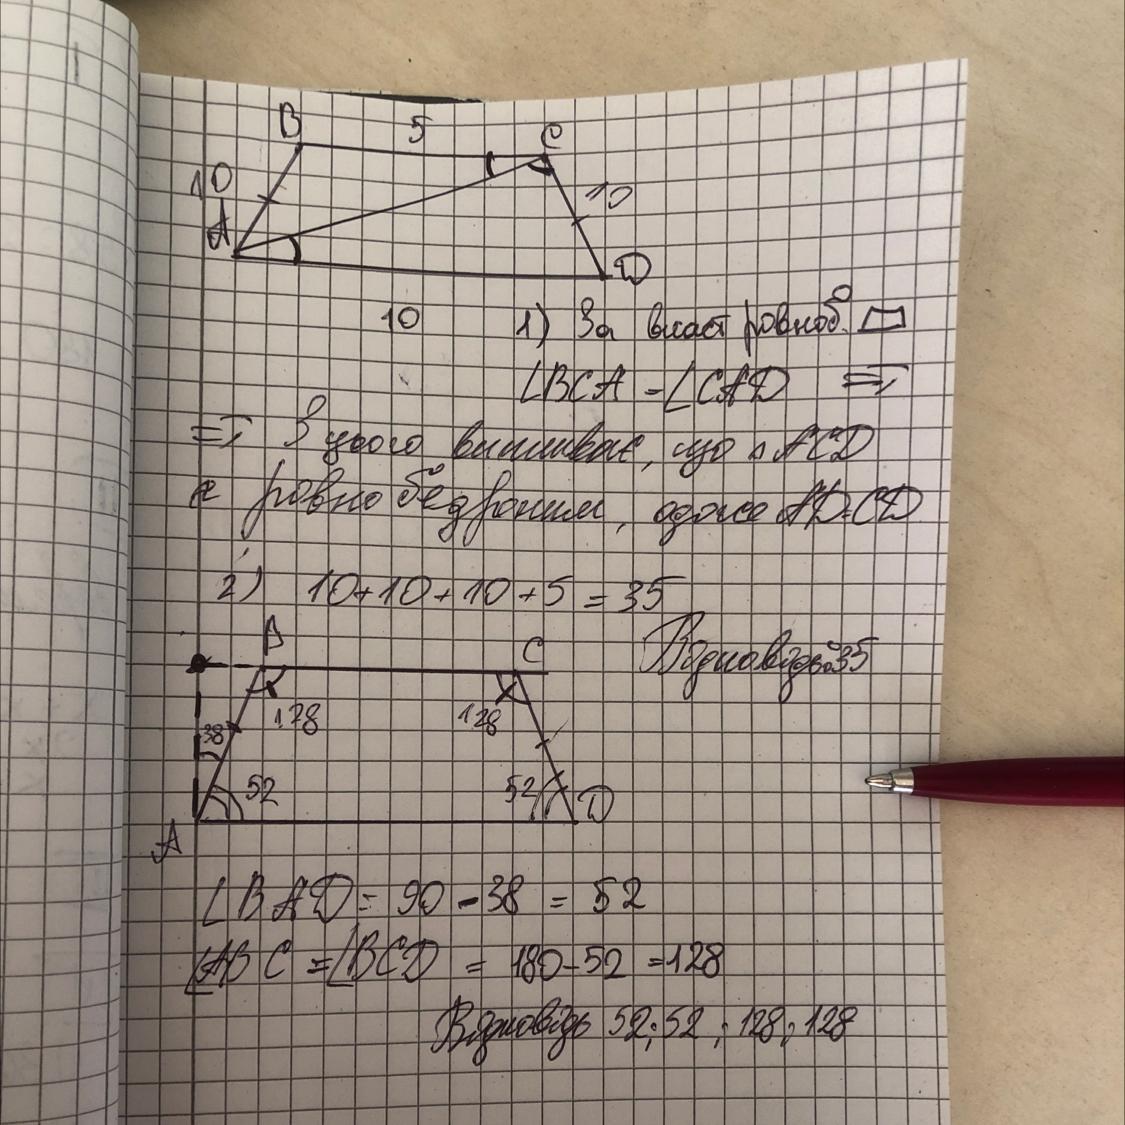 B 5 C
10 10
A D
10 1) За власт рівноб.
∠BCA = ∠CAD =>
=> З цього випливає, що △ ACD
є рівнобедреним, отже AD=CD
2) 10+10+10+5 = 35
B C Відповідь: 35
128 128
38
52 52 D
A
∠BAD = 90 - 38 = 52
∠ABC = ∠BCD = 180-52 =128
Відповідь 52; 52 ; 128; 128